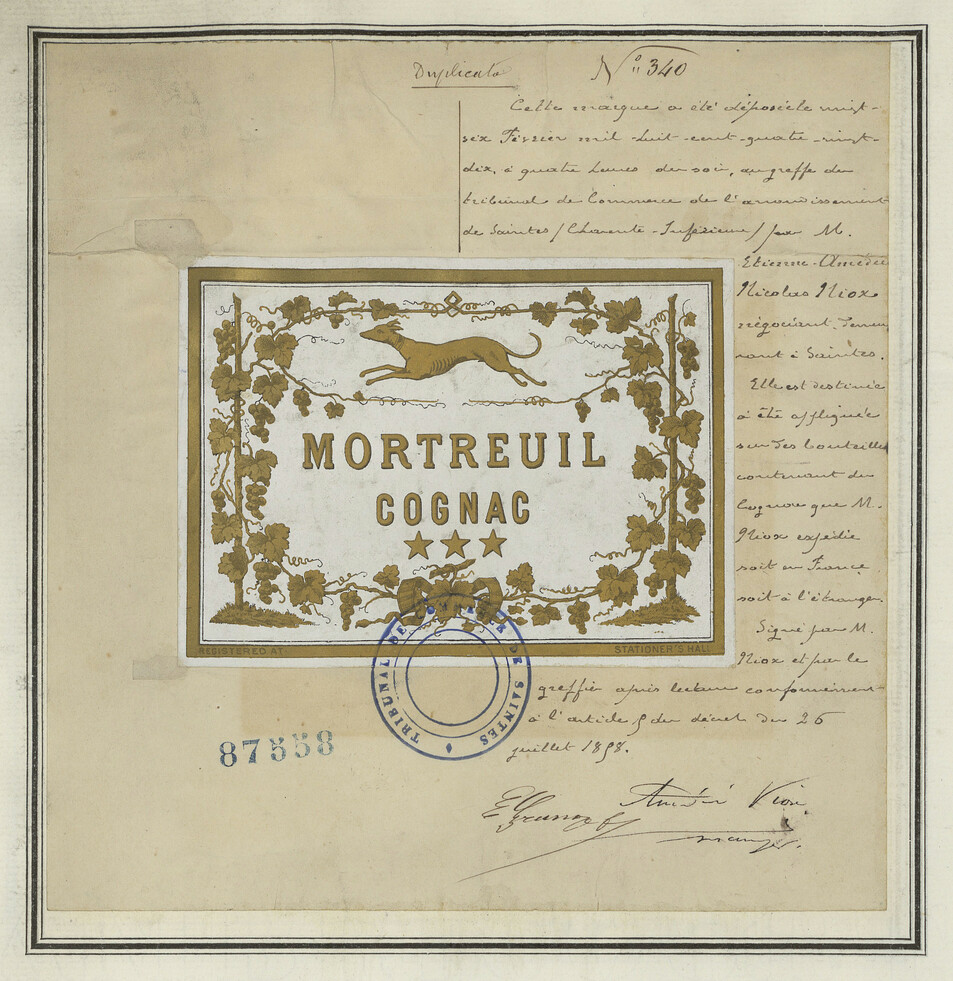 Duplicata
N° 340
Cette marque a été déposée le vingt-
six Février mil huit-cent-quatre-vingt-
dix, à quatre heures du soir, au greffe du
tribunal de Commerce de l'arrondissement
de Saintes (Charente-Inférieure) par M.
Etienne-Amédée
Nicolas Niox
négociant, demeu
rant à Saintes.
Elle est destinée
à être appliquée
sur des bouteilles
contenant du
Cognac que M.
Niox expédie
soit en France
soit à l'étranger.
Signé par M.
Niox et par le
greffier après lecture conformément
à l'article 5 du décret du 26
juillet 1858.
MORTREUIL
COGNAC
REGISTERED AT
STATIONER'S HALL
TRIBUNAL DE COMMERCE DE SAINTES
87558
Amédée Niox